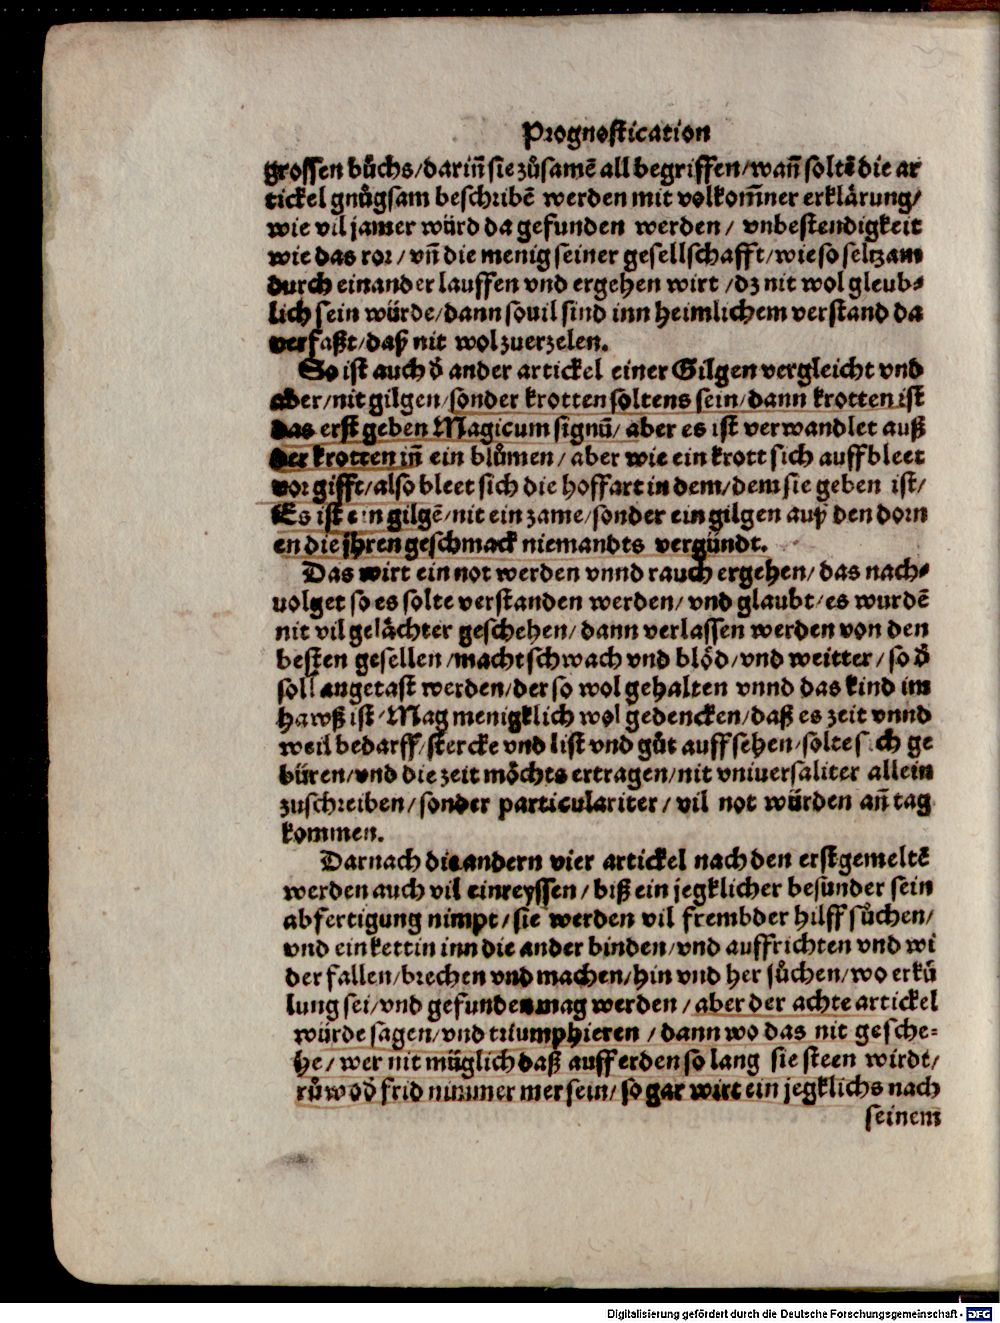 Prognostication
grossen bůchs/dariñ sie zůsamẽ all begriffen/wañ soltẽ die ar
tickel gnůgsam beschribẽ werden mit volkom̃ner erklärung/
wie vil jamer würd da gefunden werden/ vnbestendigkeit
wie das ror/ vñ die menig seiner gesellschafft/wie so seltzam
durch einander lauffen vnd ergehen wirt /dz nit wol gleub⸗
lich sein würde/dann souil sind inn heimlichem verstand da
verfaßt/daß nit wol zuerzelen.
So ist auch d̕ ander artickel einer Gilgen vergleicht vnd
aber/nit gilgen/sonder krotten soltens sein/dann krotten ist
das erst geben Magicum signũ/ aber es ist verwandlet auß
der krotten iñ ein blůmen/ aber wie ein krott sich auffbleet
vor gifft/also bleet sich die hoffart in dem/dem sie geben ist/
Es ist ein gilgẽ/nit ein zame/sonder ein gilgen auß den dorn
en die jhren geschmack niemandts vergündt.
Das wirt ein not werden vnnd rauch ergehen/das nach⸗
uolget so es solte verstanden werden/ vnd glaubt/es wurdẽ
nit vil gelächter geschehen/dann verlassen werden von den
besten gesellen/macht schwach vnd blöd/vnd weitter/so d̕
soll angetast werden/der so wol gehalten vnnd das kind im
hawß ist/Mag menigklich wol gedencken/daß es zeit vnnd
weil bedarff/stercke vnd list vnd gůt auffsehen/solte s ch ge
büren/vnd die zeit möchts ertragen/nit vniuersaliter allein
zuschreiben/sonder particulariter/ vil not würden añ tag
kommen.
Darnach die andern vier artickel nach den erstgemeltẽ
werden auch vil einreyssen/ biß ein jegklicher besunder sein
abfertigung nimpt/sie werden vil frembder hilff sůchen/
vnd ein kettin inn die ander binden/vnd auffrichten vnd wi
der fallen/brechen vnd machen/hin vnd her sůchen/wo erkü
lung sei/vnd gefunden mag werden/aber der achte artickel
würde sagen/vnd triumphieren/dann wo das nit gesche⸗
he/wer nit müglich daß auff erden so lang sie steen wirdt/
růw od̕ frid nimmer mer sein/so gar wirt ein jegklichs nach
seinem
Digitalisierung gefördert durch die Deutsche Forschungsgemeinschaft - DFG